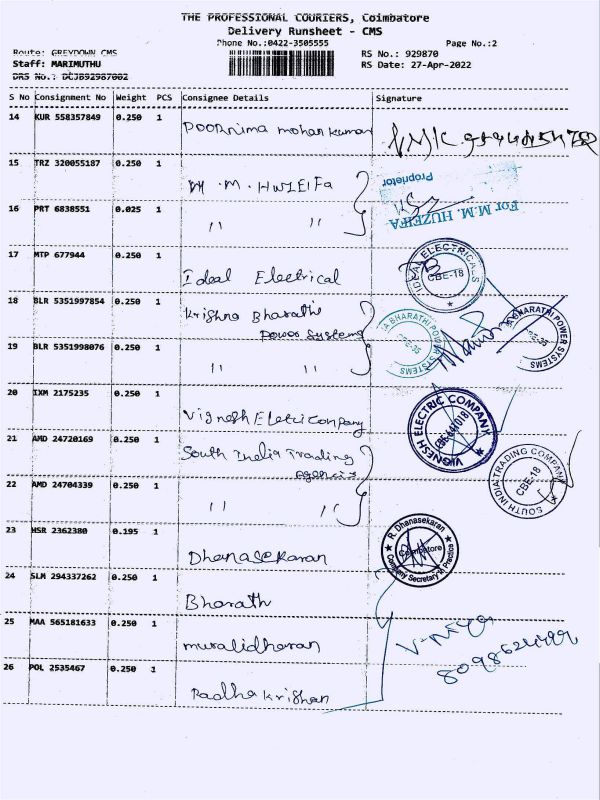 THE PROFESSIONAL COURIERS, Coimbatore
Delivery Runsheet - CMS
Phone No.:0422-3505555 Page No.:2
Route: GREYDOWN CMS RS No.: 929870
Staff: MARIMUTHU RS Date: 27-Apr-2022
DRS No.: DCJB92987002
S No Consignment No Weight PCS Consignee Details Signature
14 KUR 558357849 0.250 1 Poornima mohan kumar
15 TRZ 320055187 0.250 1 M.M.HUZEIFa
For M.M. HUZEIFA
Proprietor
16 PRT 6838551 0.025 1 " "
17 MTP 677944 0.250 1 Ideal Electrical
IDEAL ELECTRICALS
CBE-18
18 BLR 5351997854 0.250 1 Krishna Bharathi
Power Systems
A BHARATHI POWER SYSTEMS
CBE-35
BHARATHI POWER SYSTEMS
CBE-35
19 BLR 5351998076 0.250 1 " "
20 IXM 2175235 0.250 1 Vignesh Eletri Company
VIGNESH ELECTRIC COMPANY
21 AMD 24720169 0.250 1 South India Trading
Agencis
SOUTH INDIA TRADING COMPANY
CBE-18
22 AMD 24704339 0.250 1 " "
23 HSR 2362380 0.195 1 Dhanasekaran
R. Dhanasekaran
Coimbatore
Company Secretary in Practice
24 SLM 294337262 0.250 1 Bharath
25 MAA 565181633 0.250 1 muralidharan
26 POL 2535467 0.250 1 Radha Krishan